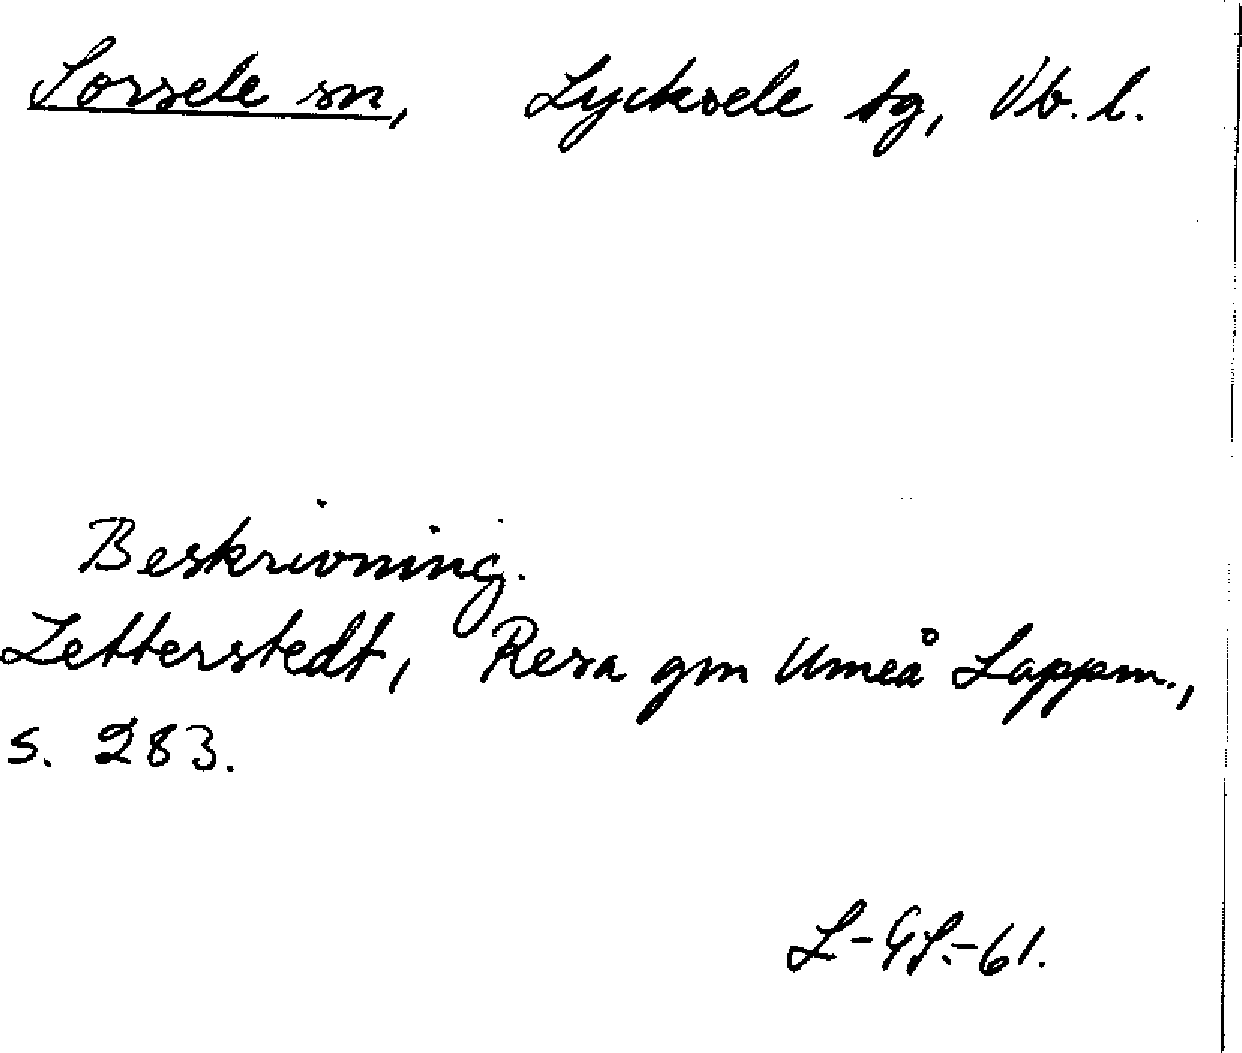 Sorsele sn, Lycksele tg, Vb. l.
Beskrivning.
Zetterstedt, Resa gm Umeå Lappm.,
s. 283.
L-GS.-61.